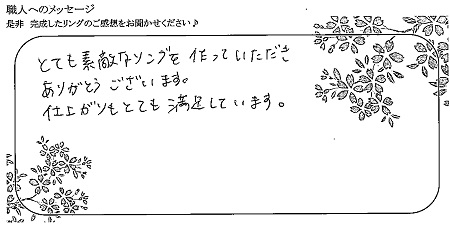 職人へのメッセージ
是非 完成したリングのご感想をお聞かせください♪
とても素敵なリングを 作っていただき
ありがとう ございます。
仕上がりもとても 満足しています。